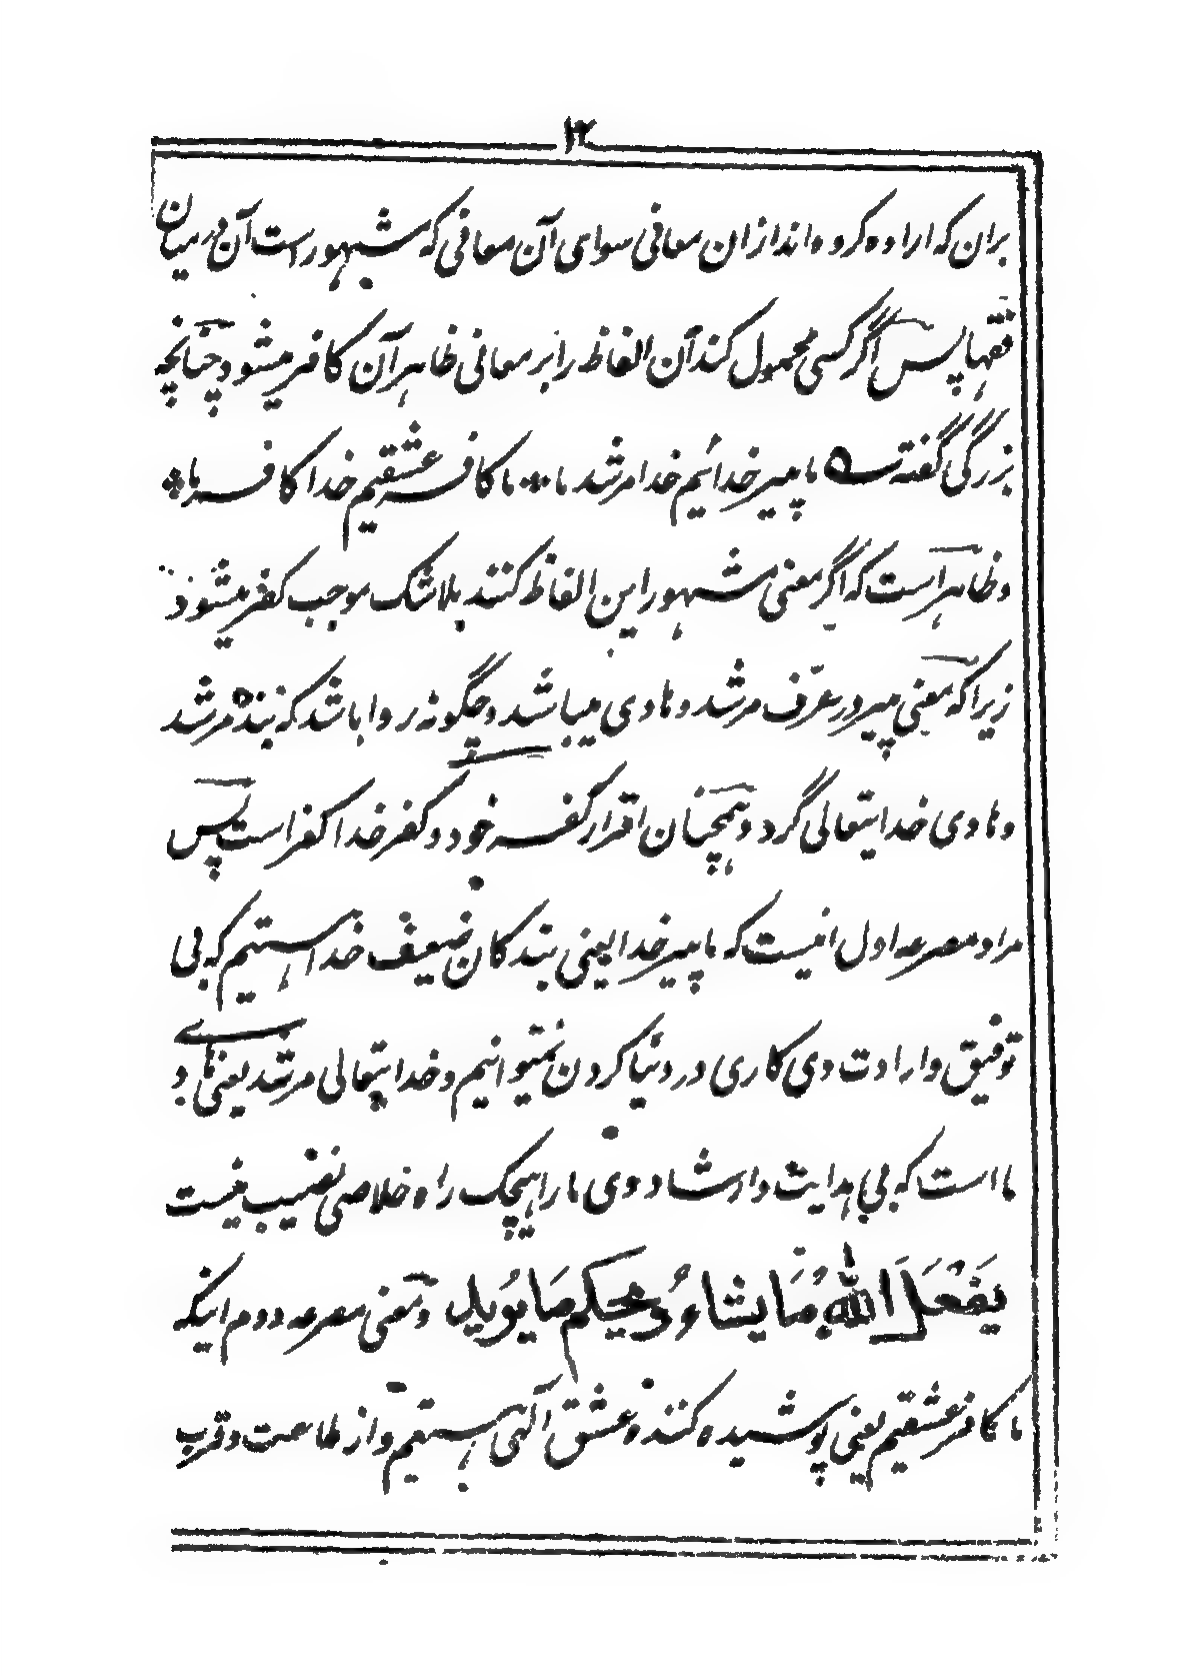 ۱۳
بران که اراده کرده اند ازان معانی سوای آن معانی که مشهور است آن در میان
فقها پس اگر کسی محمول کند آن الفاظ را بر معانی ظاهر آن کافر میشود چنانچه
بزرگی گفته ما پیر خدائیم خدا مرشد ما ما کافر عشقیم خدا کافر ما
و ظاهر است که اگر معنی مشهور این الفاظ کنند بلا شک موجب کفر میشود
زیرا که معنی پیر در عرف مرشد و هادی میباشد و چگونه روا باشد که بنده مرشد
و هادی خدایتعالی گردد و همچنان اقرار کفر خود و کفر خدا کفر است پس
مراد مصرعه اول اینست که ما پیر خدا یعنی بندکان ضعیف خدا هستیم که بی
توفیق و ارادت وی کاری در دنیا کردن نمیتوانیم و خدایتعالی مرشد یعنی هادی
ما است که بی هدایت و ارشاد وی ما را هیچک راه خلاصی نصیب نیست
يَفْعَلُ اللهُ مَا يَشَاءُ وَيَحْكُمُ مَا يُرِيدُ و معنی مصرعه دوم اینکه
ما کافر عشقیم یعنی پوشیده کننده عشق آلهی هستیم و از طاعت و قرب